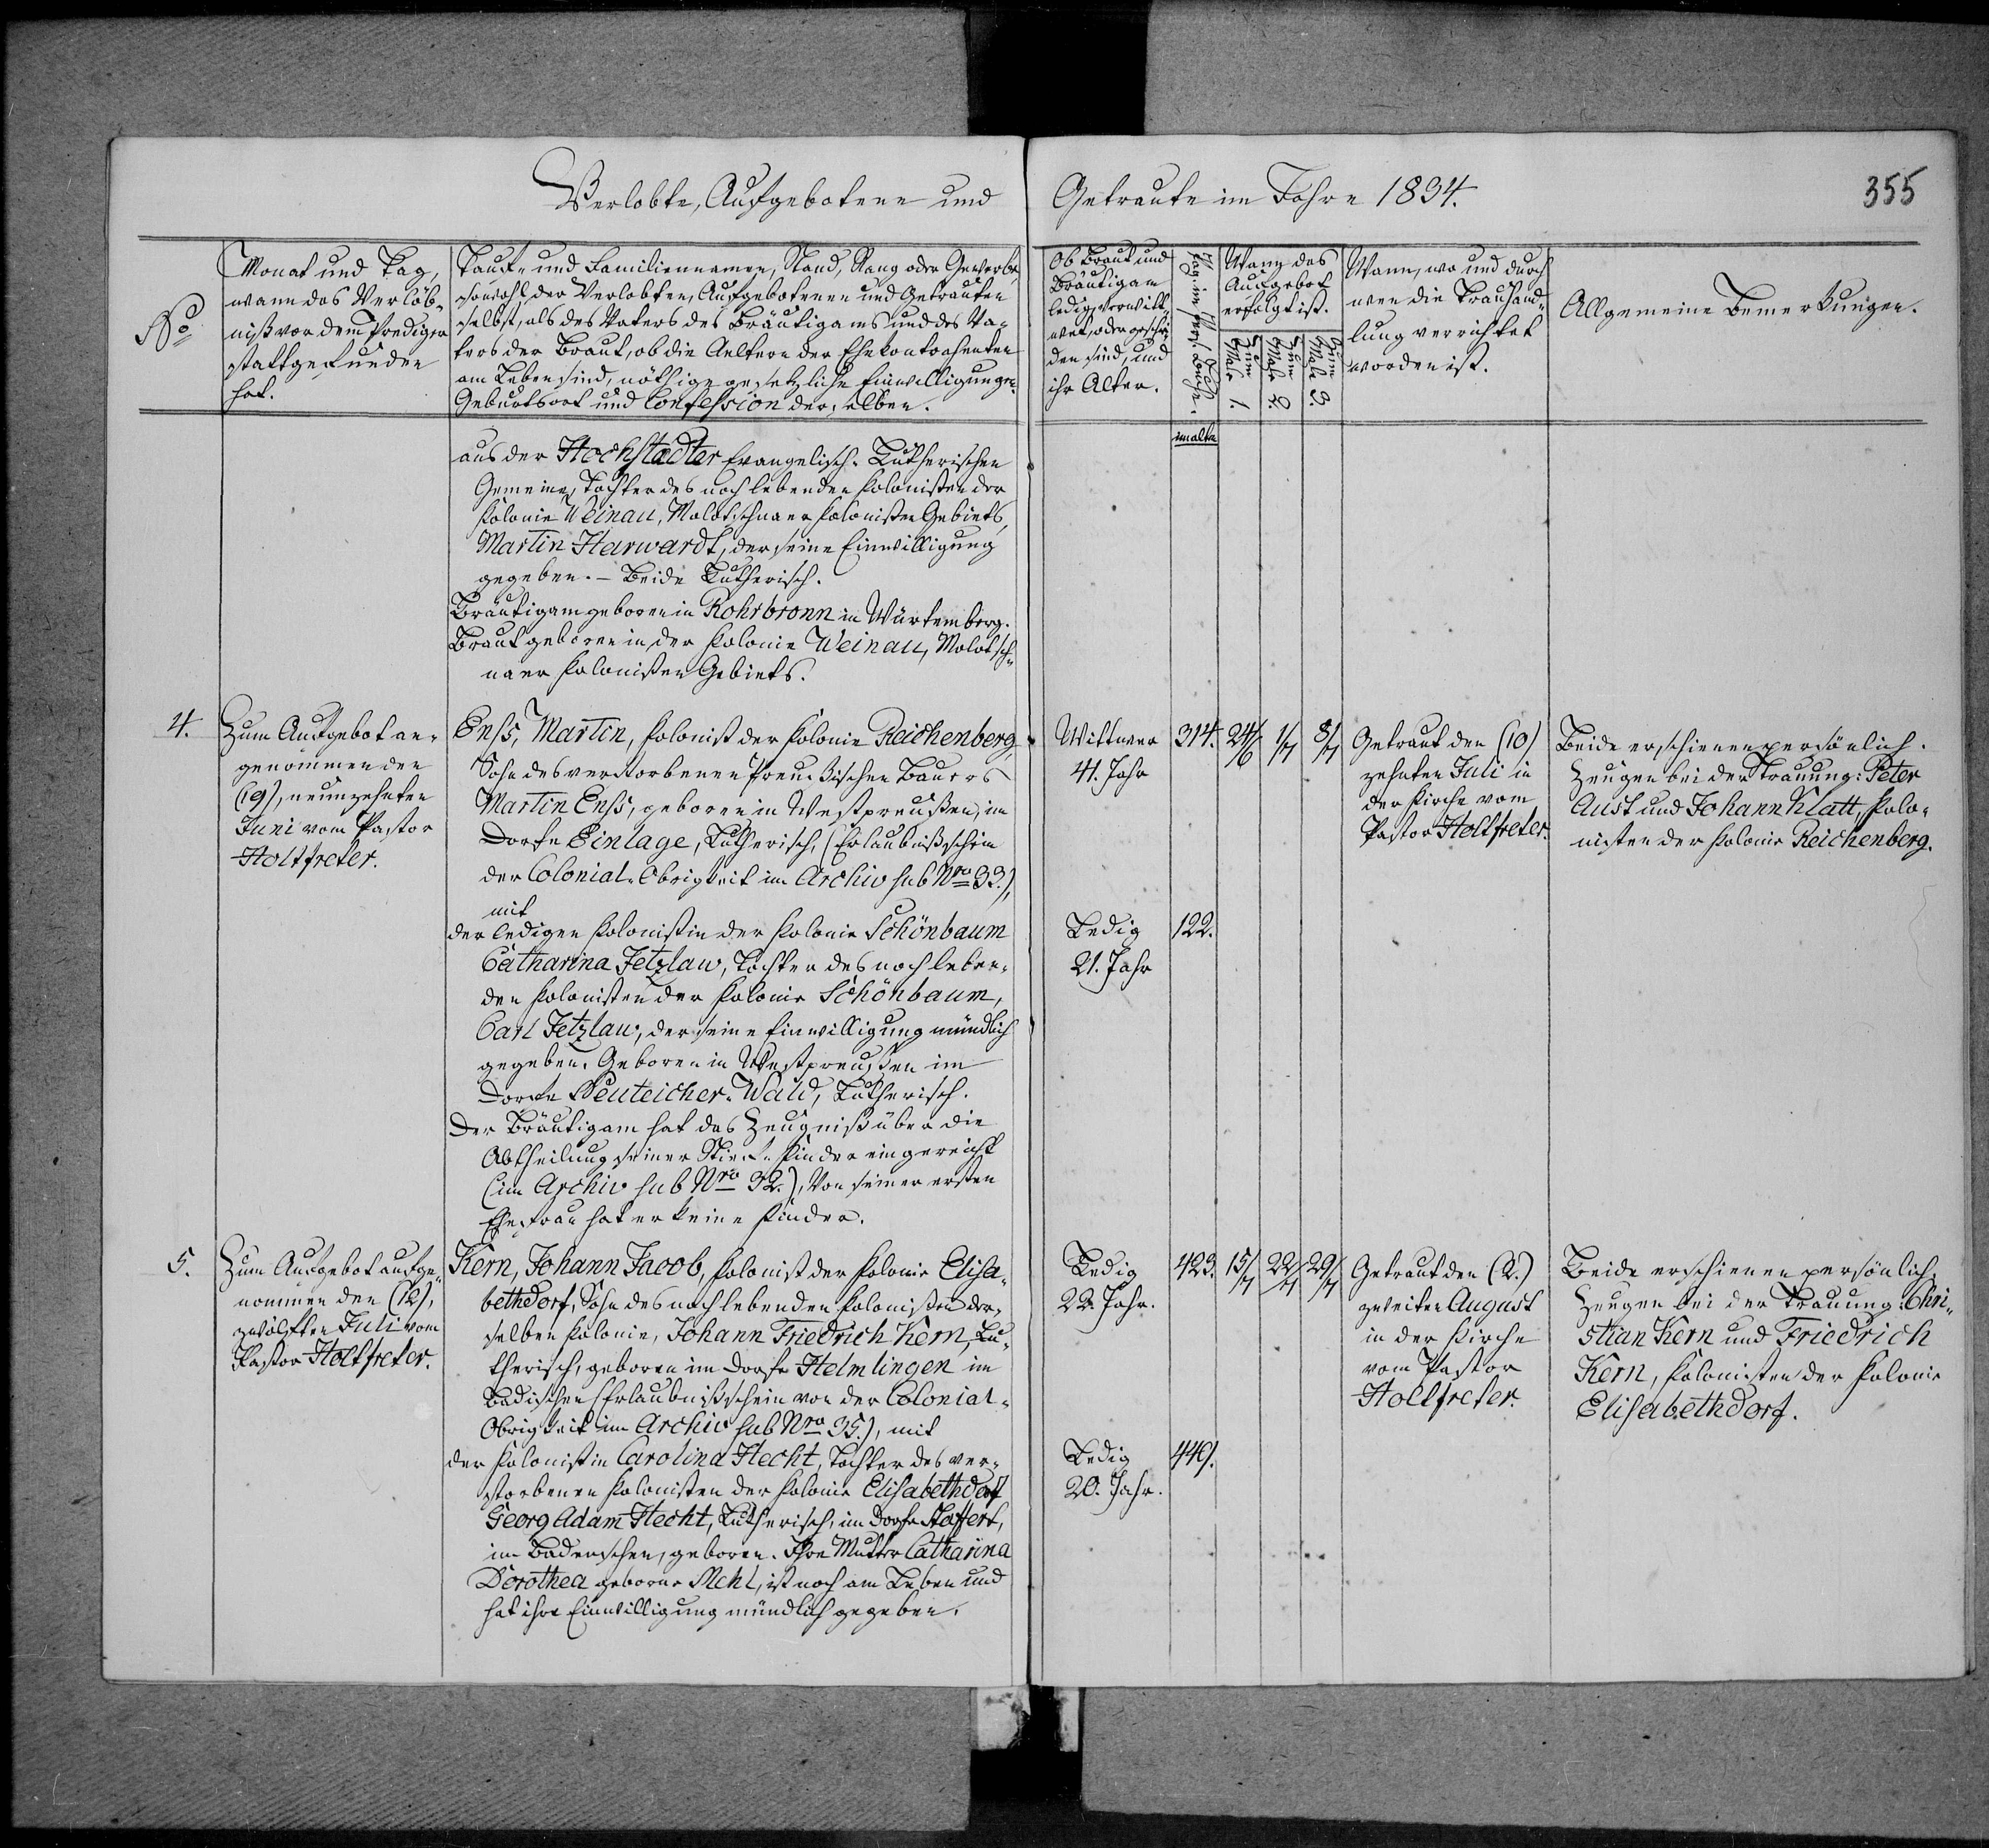 Verlobte, Aufgebotene und Getraute im Jahre 1834.
355
No
Monat und Tag,
wann das Verlöb-
niß vor dem Prediger
stattgefunden
hat.
Tauf- und Familiennamen, Stand, Rang oder Gewerbe,
sowohl der Verlobten, Aufgebotenen und Getrauten
selbst, als des Vaters des Bräutigams und des Va-
ters der Braut, ob die Aeltern der Ehekontrahenten
am Leben sind, nöthige gesetzliche Einwilligungen,
Geburtsort und Confession derselben.
Ob Braut und
Bräutigam
ledig, verwitt-
wet, oder geschie-
den sind, und
ihr Alter.
Pag. im Pers. Buche.
Wann das
Aufgebot
erfolgt ist.
Zum Male 1.
Zum Male 2.
Zum Male 3.
Wann, wo und durch
wen die Trauhand-
lung verrichtet
worden ist.
Allgemeine Bemerkungen.
im alten
aus der Hochstädter Evangelisch-Lutherischen
Gemeine, Tochter des noch lebenden Kolonisten der
Kolonie Weinau, Molotschnaer Kolonisten Gebiets,
Martin Harwardt, der seine Einwilligung
gegeben. - Beide Lutherisch.
Bräutigam geboren in Rohrbronn in Würtemberg.
Braut geboren in der Kolonie Weinau, Molotsch-
naer Kolonisten Gebiets.
4.
Zum Aufgebot an-
genommen den
(19), neunzehnten
Juni vom Pastor
Holtfreter.
Enss, Martin, Kolonist der Kolonie Reichenberg,
Sohn des verstorbenen Preußischen Bauers
Martin Enss, geboren in Westpreußen, im
Dorfe Einlage, Lutherisch, (Erlaubnißschein
der Colonial-Obrigkeit im Archiv sub Nro 33.),
mit
der ledigen Kolonistin der Kolonie Schönbaum
Catharina Jetzlaw, Tochter des noch leben-
den Kolonisten der Kolonie Schönbaum,
Carl Jetzlaw, der seine Einwilligung mündlich
gegeben. Geboren in Westpreußen im
Dorfe Neuteicher-Wald, Lutherisch.
Der Bräutigam hat das Zeugniß über die
Abtheilung seiner Stief-Kinder eingereicht
(im Archiv sub Nro 32.), Von seiner ersten
Ehefrau hat er keine Kinder.
Wittwer
41. Jahr
314.
24/6
1/7
8/7
Getraut den (10)
zehnten Juli in
der Kirche vom
Pastor Holtfreter.
Beide erschienen persönlich.
Zeugen bei der Trauung: Peter
Aust und Johann Klatt, Kolo-
nisten der Kolonie Reichenberg.
Ledig
21. Jahr
122.
5.
Zum Aufgebot aufge-
nommen den (12),
zwölften Juli vom
Pastor Holtfreter.
Kern, Johann Jacob, Kolonist der Kolonie Elisa-
bethdorf, Sohn des noch lebenden Kolonisten der-
selben Kolonie, Johann Friedrich Kern, Lu-
therisch, geboren im Dorfe Helmlingen im
Badischen (Erlaubnißschein von der Colonial-
Obrigkeit im Archiv sub Nro 35.), mit
der Kolonistin Carolina Hecht, Tochter des ver-
storbenen Kolonisten der Kolonie Elisabethdorf
Georg Adam Hecht, Lutherisch, im Dorfe Staffert,
im Badenschen, geboren. Ihre Mutter Catharina
Dorothea geborne Mehl, ist noch am Leben und
hat ihre Einwilligung mündlich gegeben.
Ledig
22. Jahr.
423.
15/7
22/7
29/7
Getraut den (2.)
zweiten August
in der Kirche
vom Pastor
Holtfreter.
Beide erschienen persönlich,
Zeugen bei der Trauung: Chri-
stian Kern und Friedrich
Kern, Kolonisten der Kolonie
Elisabethdorf.
Ledig
20. Jahr.